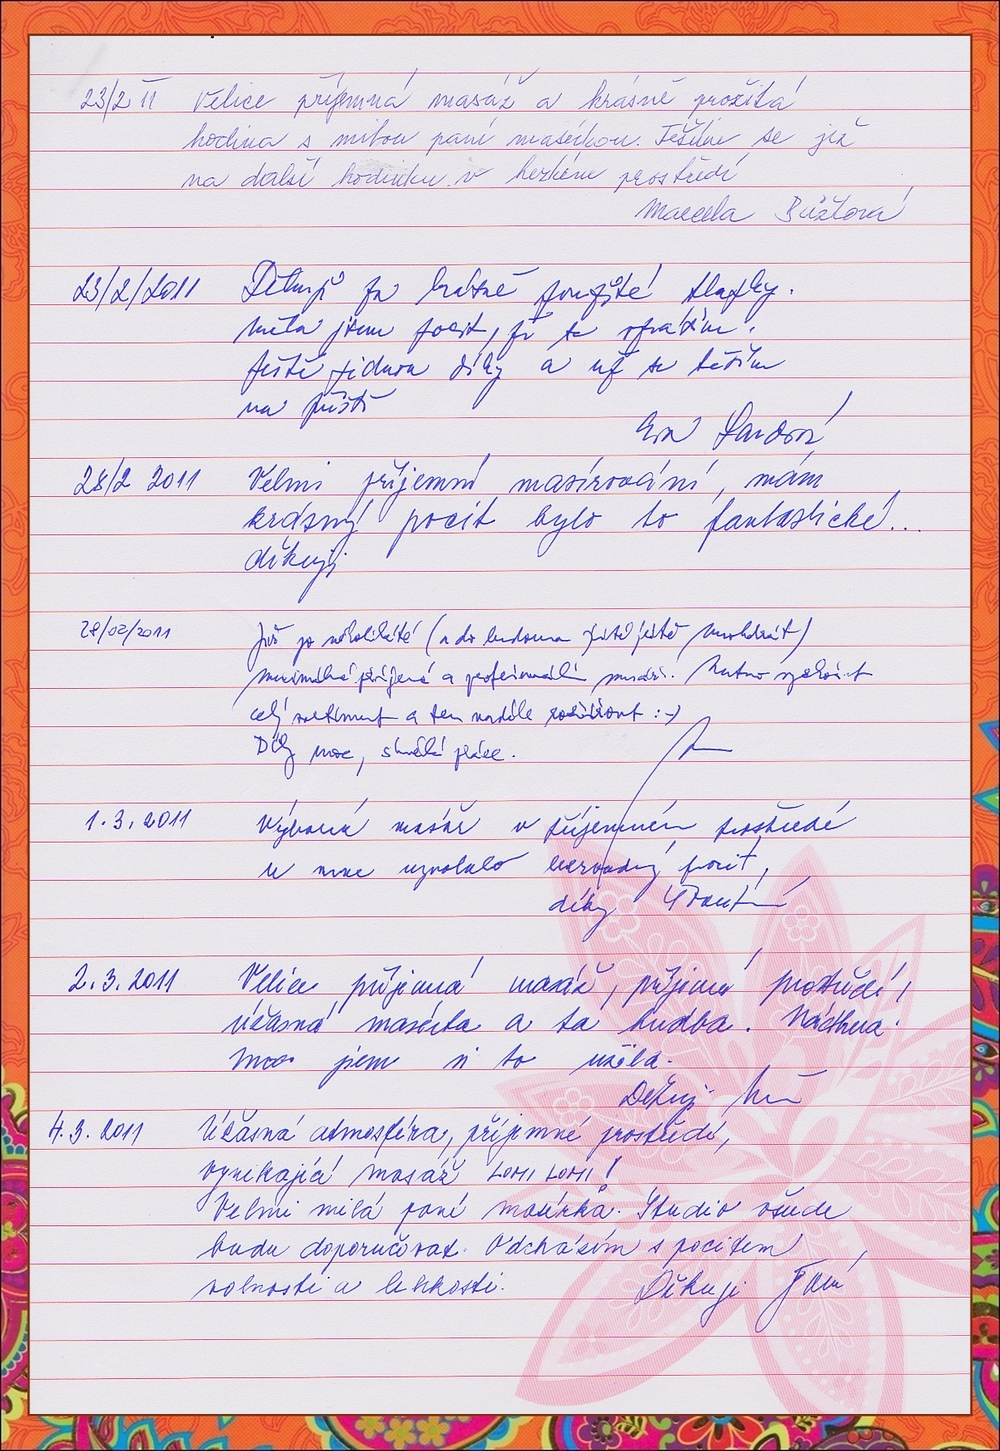 23/2 11 Velice příjemná masáž a krásně prožitá
hodina s milou paní masérkou. Těšíme se již
na další hodinku v hezkém prostředí
Marcela
23/2/2011 Děkuji za krásně použité tlapky.
Měla jsem pocit, že se vrátím.
Ještě jednou díky a už se těším
na příště
Eva
28/2 2011 Velmi příjemní masírování, mám
krásný pocit bylo to fantastické...
děkuji
28/02/2011 Již po několikáté (a do budoucna ještě)
maximálně příjemná a profesionální masáž. Nutno vyzkoušet
celý sortiment a ten nadále rozšiřovat :-)
Díky moc, skvělá práce.
1.3.2011 Výborná masáž v příjemném prostředí
ve mne vyvolalo pocit,
díky
2.3.2011 Velice příjemná masáž, příjemné prostředí,
úžasná masérka a ta hudba. Nádhera.
Moc jsem si to užila.
Děkuji
4.3.2011 Úžasná atmosféra, příjemné prostředí,
vynikající masáž LOMI LOMI!
Velmi milá paní masérka. Studio všude
budu doporučovat. Odcházím s pocitem
volnosti a lehkosti. Děkuji